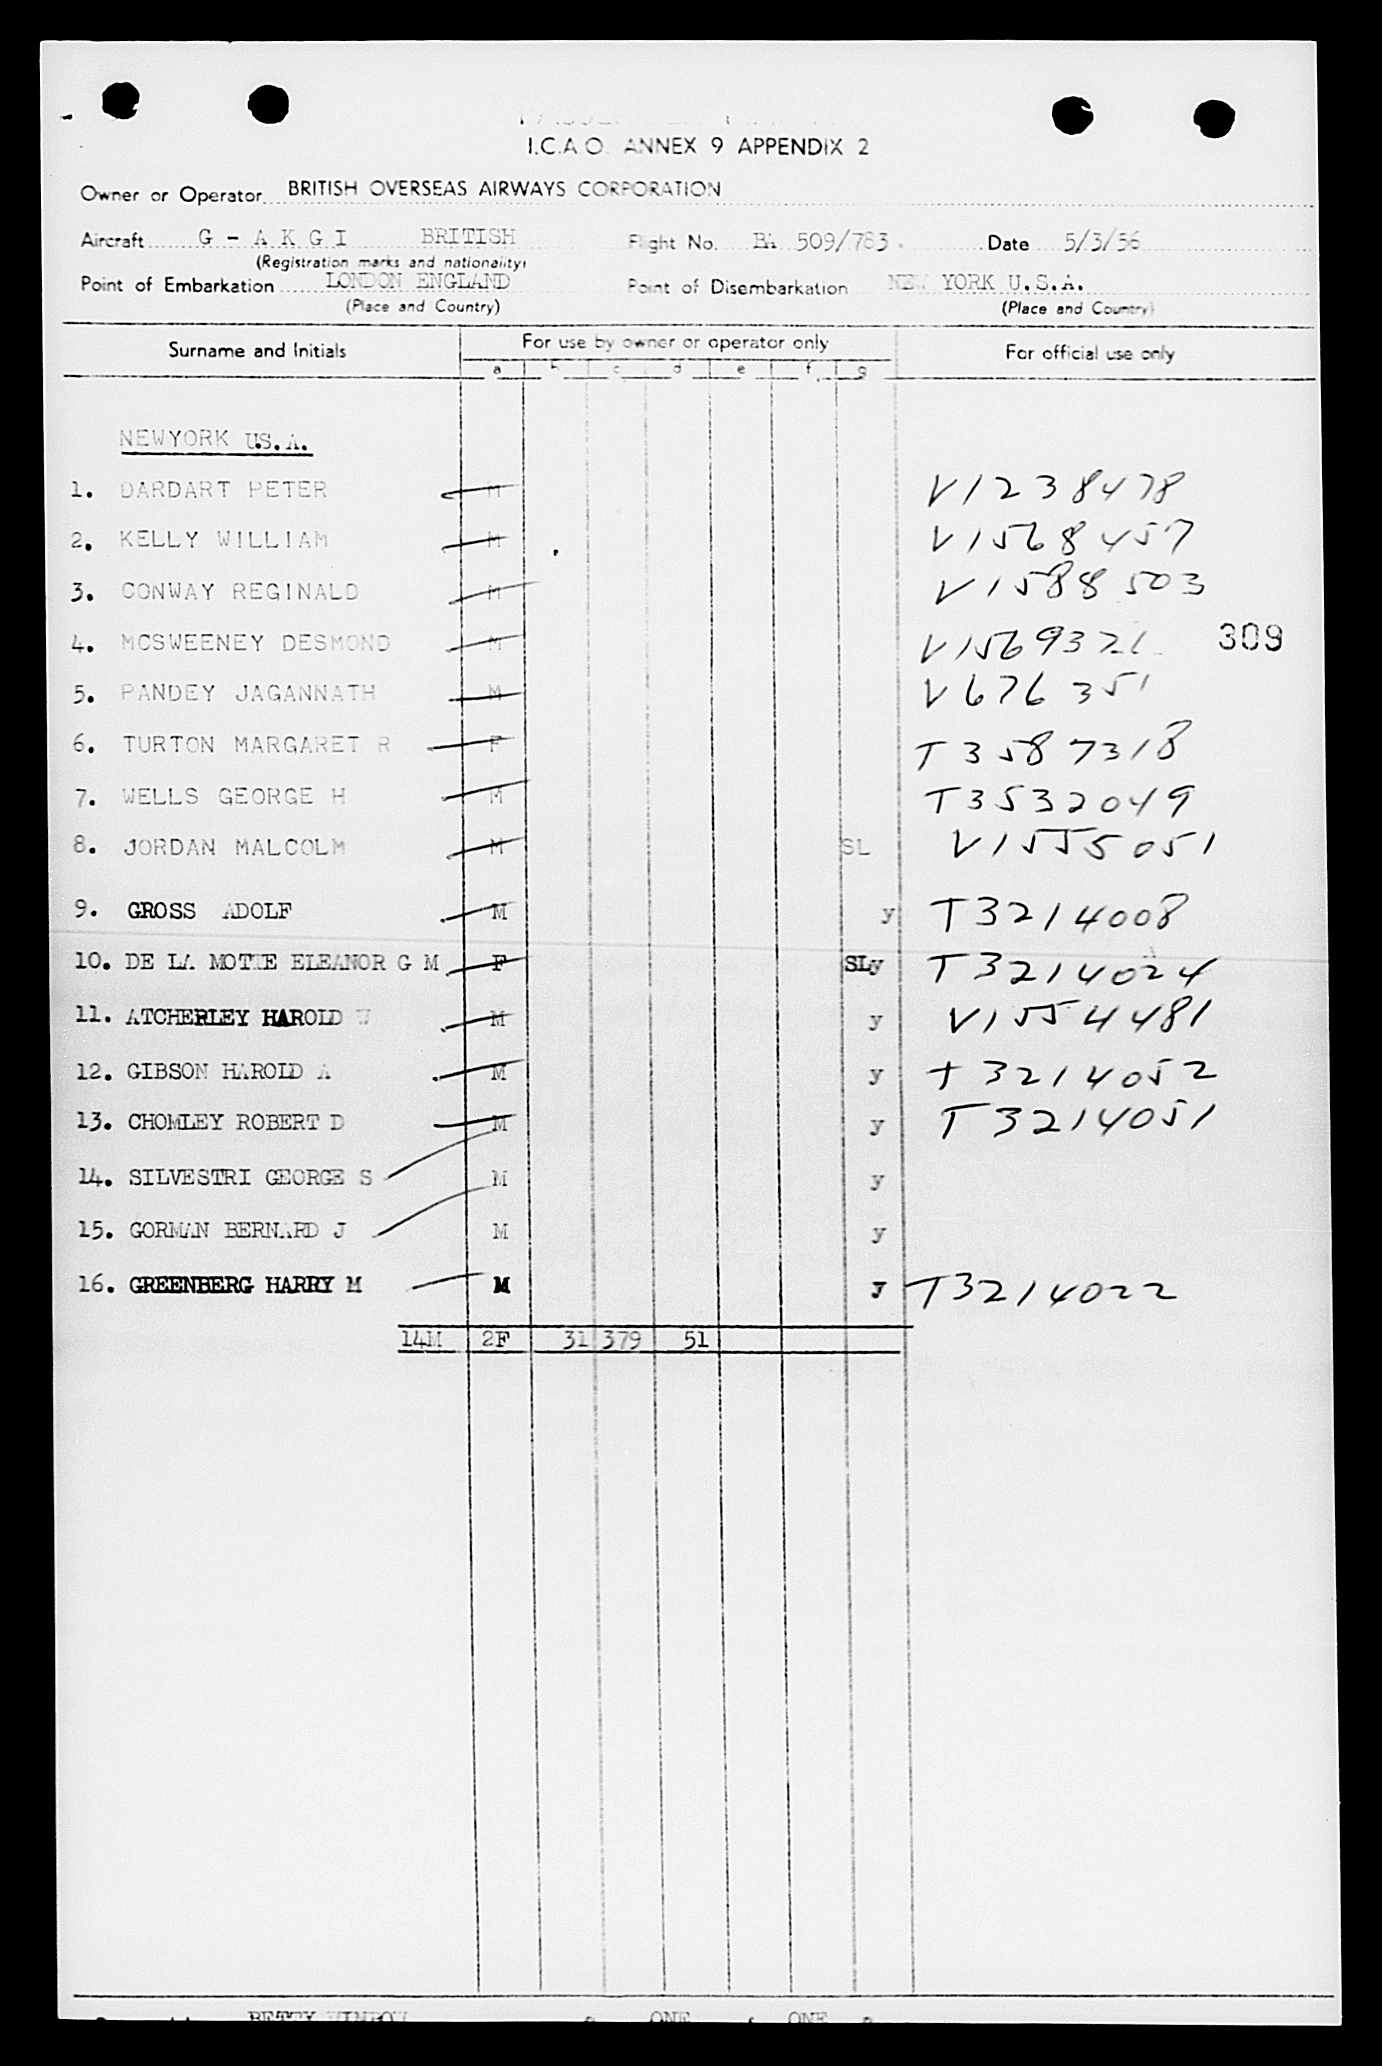 I.C.A.O. ANNEX 9 APPENDIX 2
Owner or Operator BRITISH OVERSEAS AIRWAYS CORPORATION
Aircraft G - A K G I BRITISH Flight No. BA 509/783. Date 5/3/56
(Registration marks and nationality)
Point of Embarkation LONDON ENGLAND Point of Disembarkation NEW YORK U.S.A.
(Place and Country) (Place and Country)
Surname and Initials For use by owner or operator only For official use only
a b c d e f g
NEWYORK U.S.A.
1. DARDART PETER M V1238478
2. KELLY WILLIAM M V1568457
3. CONWAY REGINALD M V1588503
4. MCSWEENEY DESMOND M V1569321 309
5. PANDEY JAGANNATH M V676351
6. TURTON MARGARET R F T3587318
7. WELLS GEORGE H M T3532049
8. JORDAN MALCOLM M SL V1555051
9. GROSS ADOLF M y T3214008
10. DE LA MOTTE ELEANOR G M F SLy T3214024
11. ATCHERLEY HAROLD W M y V1554481
12. GIBSON HAROLD A M y T3214052
13. CHOMLEY ROBERT D M y T3214051
14. SILVESTRI GEORGE S M y
15. GORMAN BERNARD J M y
16. GREENBERG HARRY M M y T3214022
14M 2F 31 379 51